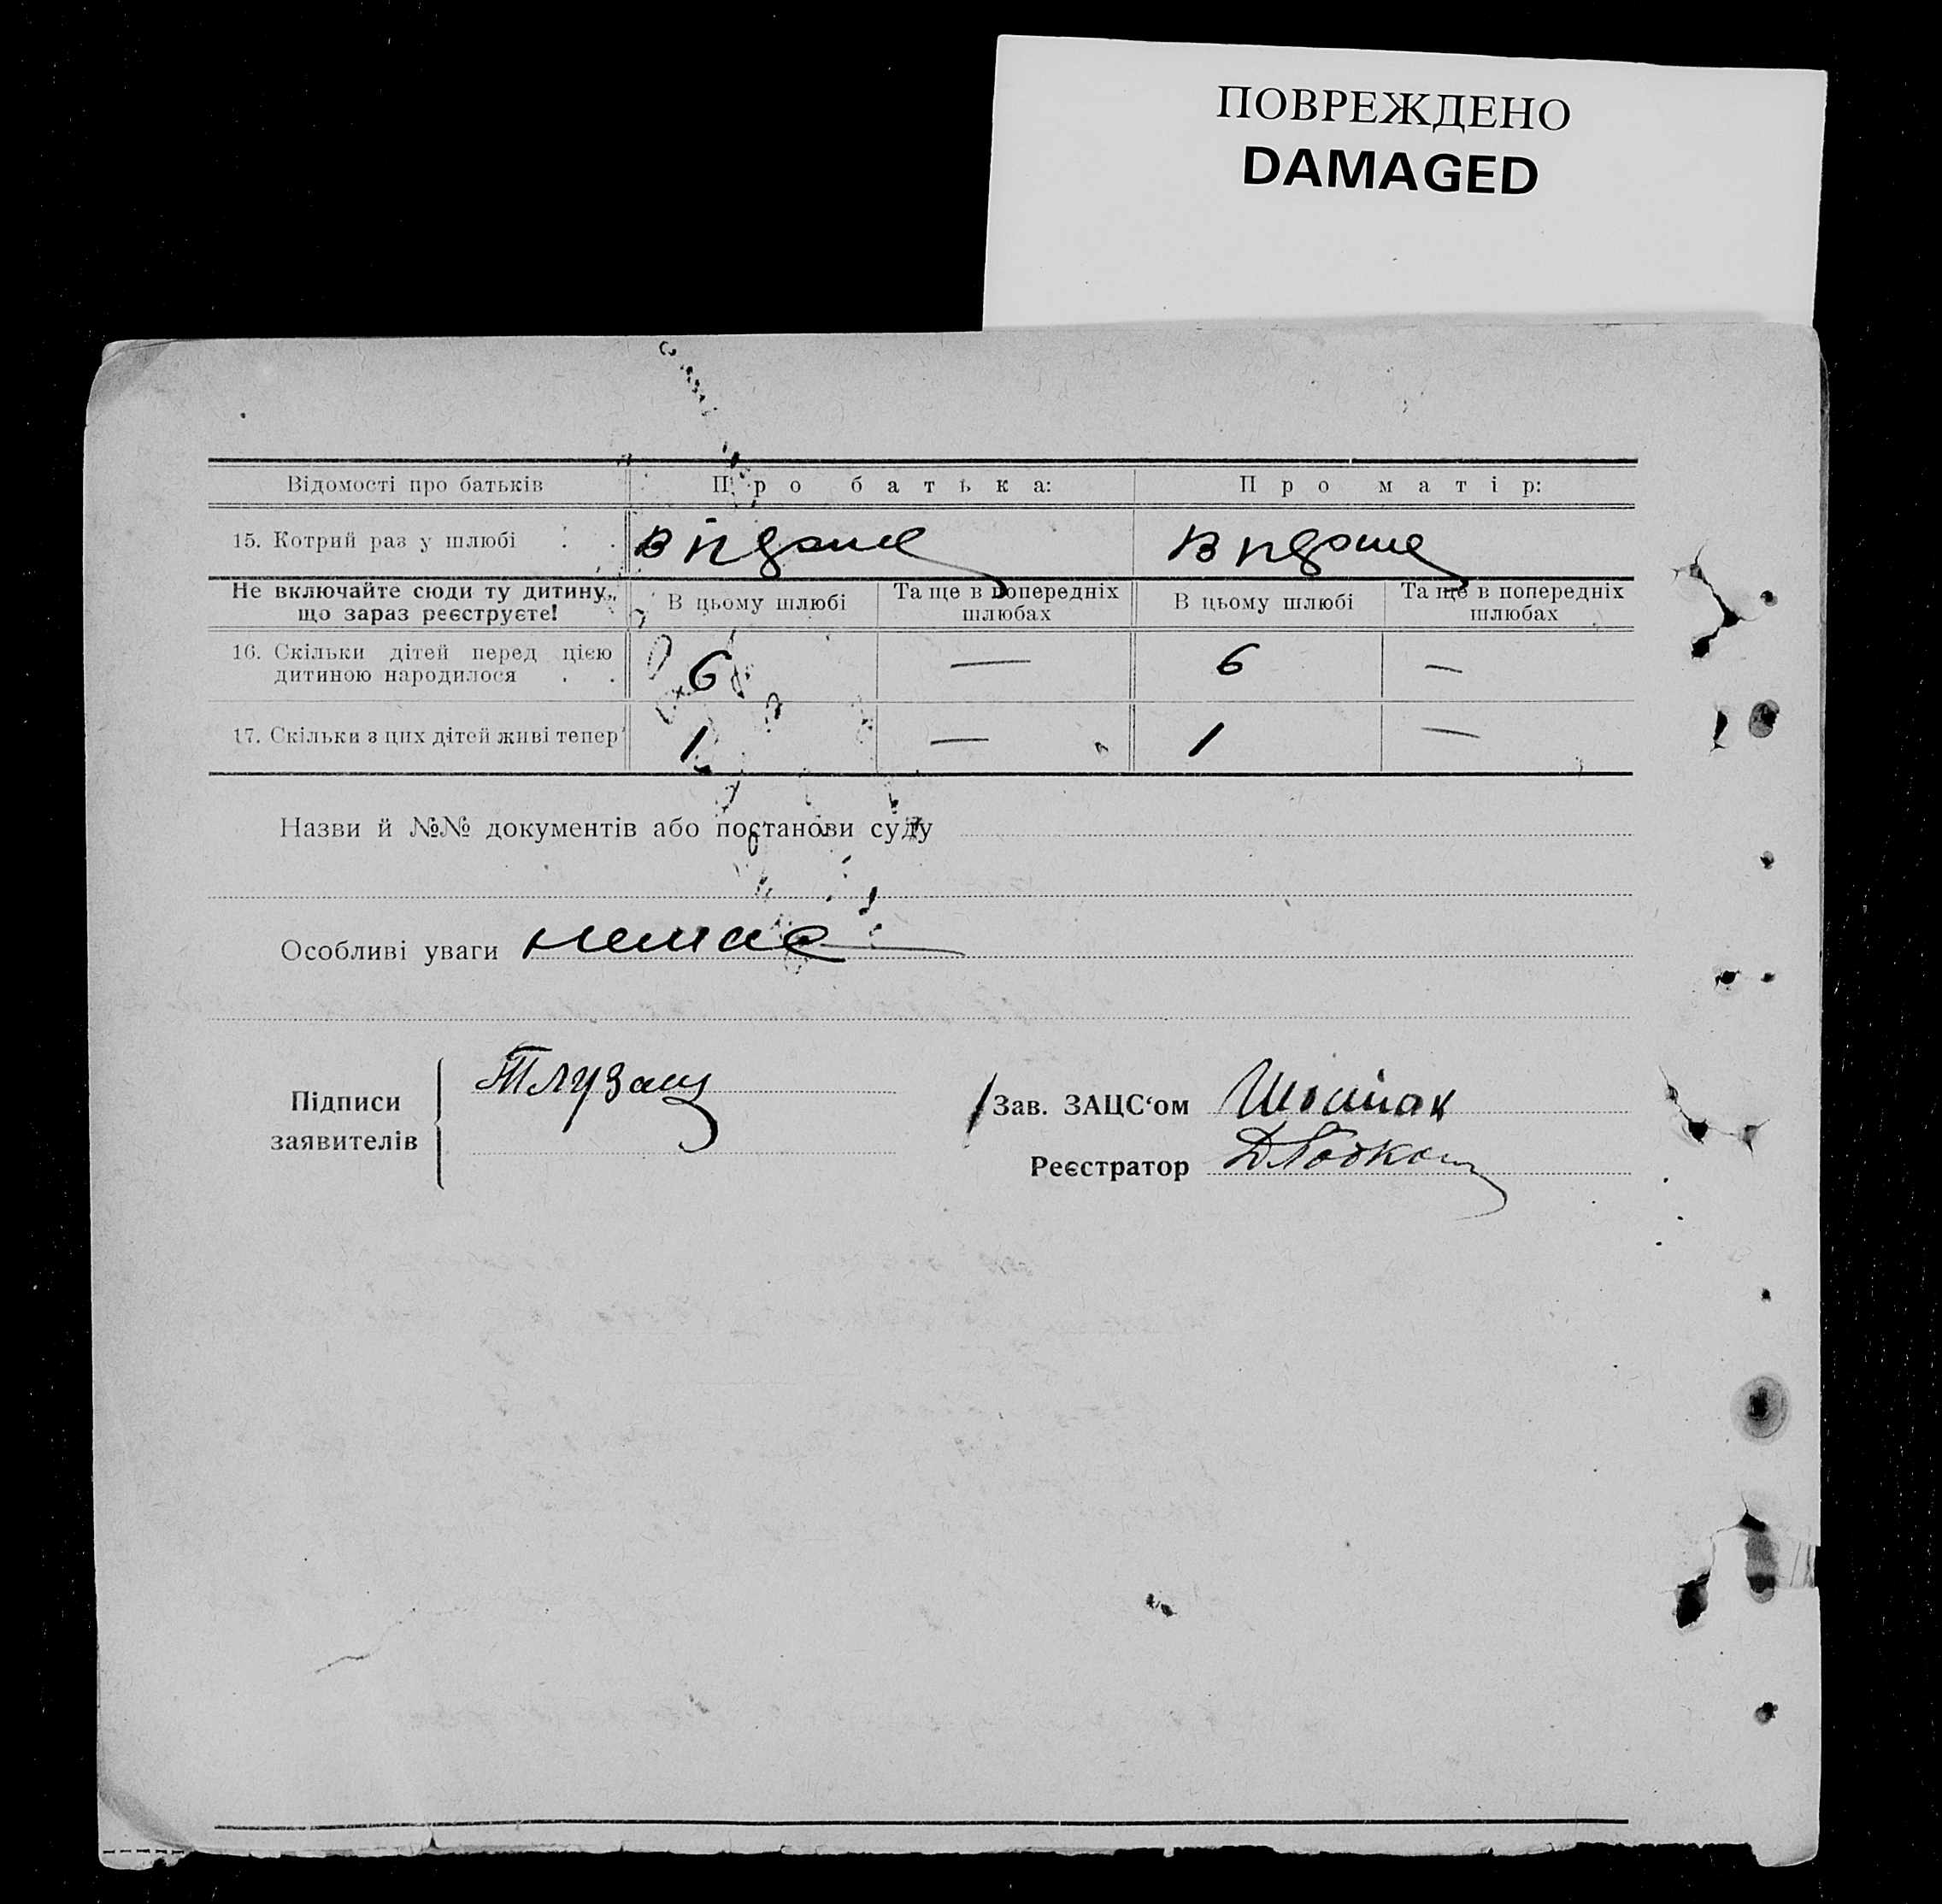 ПОВРЕЖДЕНО
DAMAGED
Відомості про батьків Про батька: Про матір:
15. Котрий раз у шлюбі . . В перше В перше
Не включайте сюди ту дитину, що зараз реєструєте! В цьому шлюбі Та ще в попередніх шлюбах В цьому шлюбі Та ще в попередніх шлюбах
16. Скільки дітей перед цією дитиною народилося . . 6 — 6 —
17. Скільки з цих дітей живі тепер 1 — 1 —
Назви й №№ документів або постанови суду
Особливі уваги немає
Підписи заявителів
Зав. ЗАЦС‘ом
Реєстратор